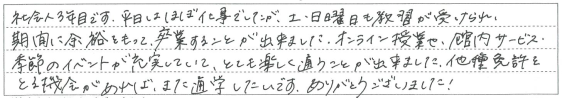 社会人3年目です。平日はほぼ仕事でしたが、土・日曜日も教習が受けられ、
期間に余裕をもって、卒業することが出来ました。オンライン授業や、館内サービス・
季節のイベントが充実していて、とても楽しく通うことが出来ました。他種免許を
とる機会があれば、また通学したいです。ありがとうございました!